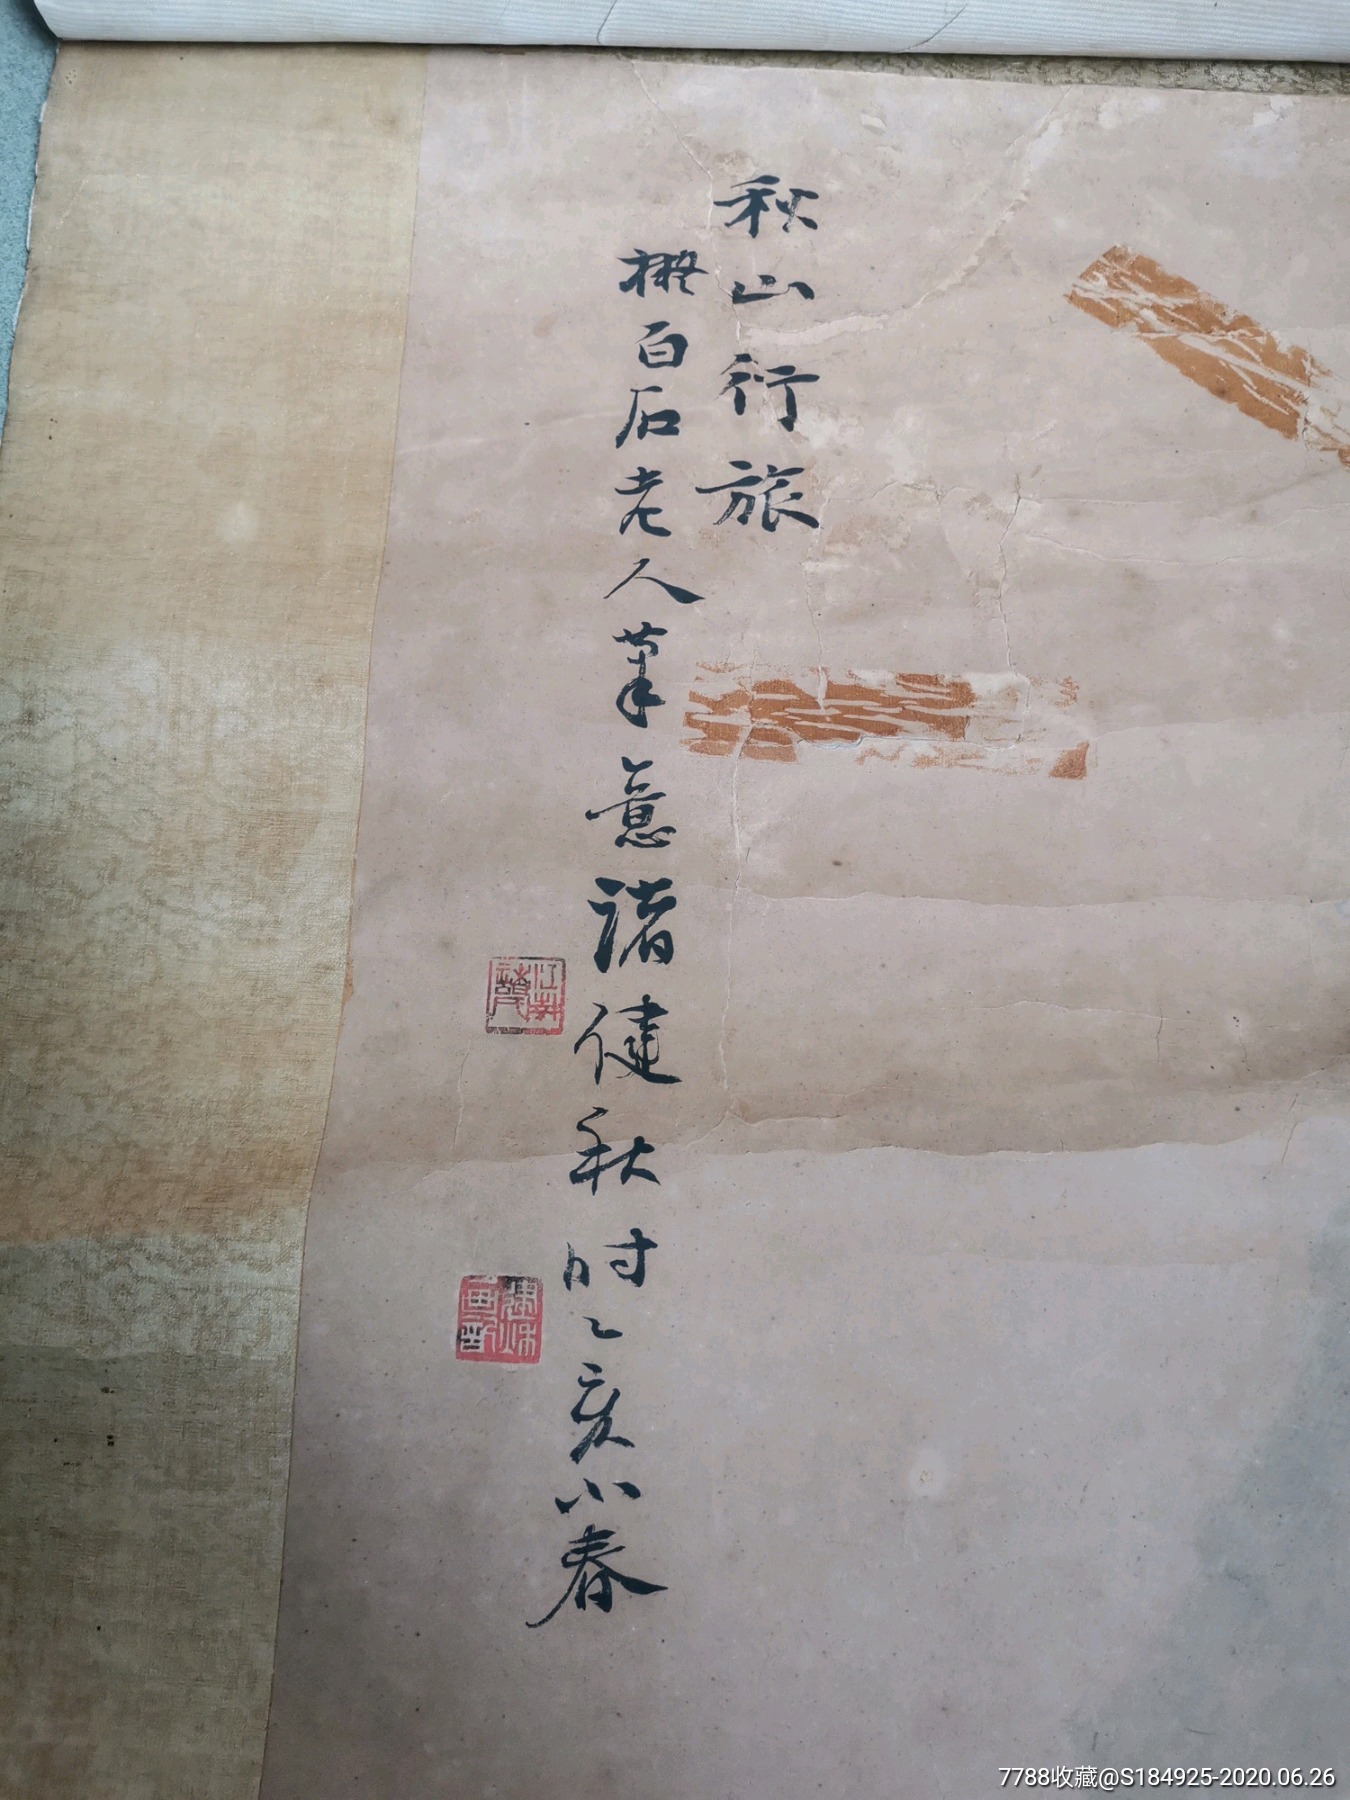 秋山行旅
橅白石老人筆意諸健秋时乙亥小春
江南
畫印
7788收藏@S184925-2020.06.26